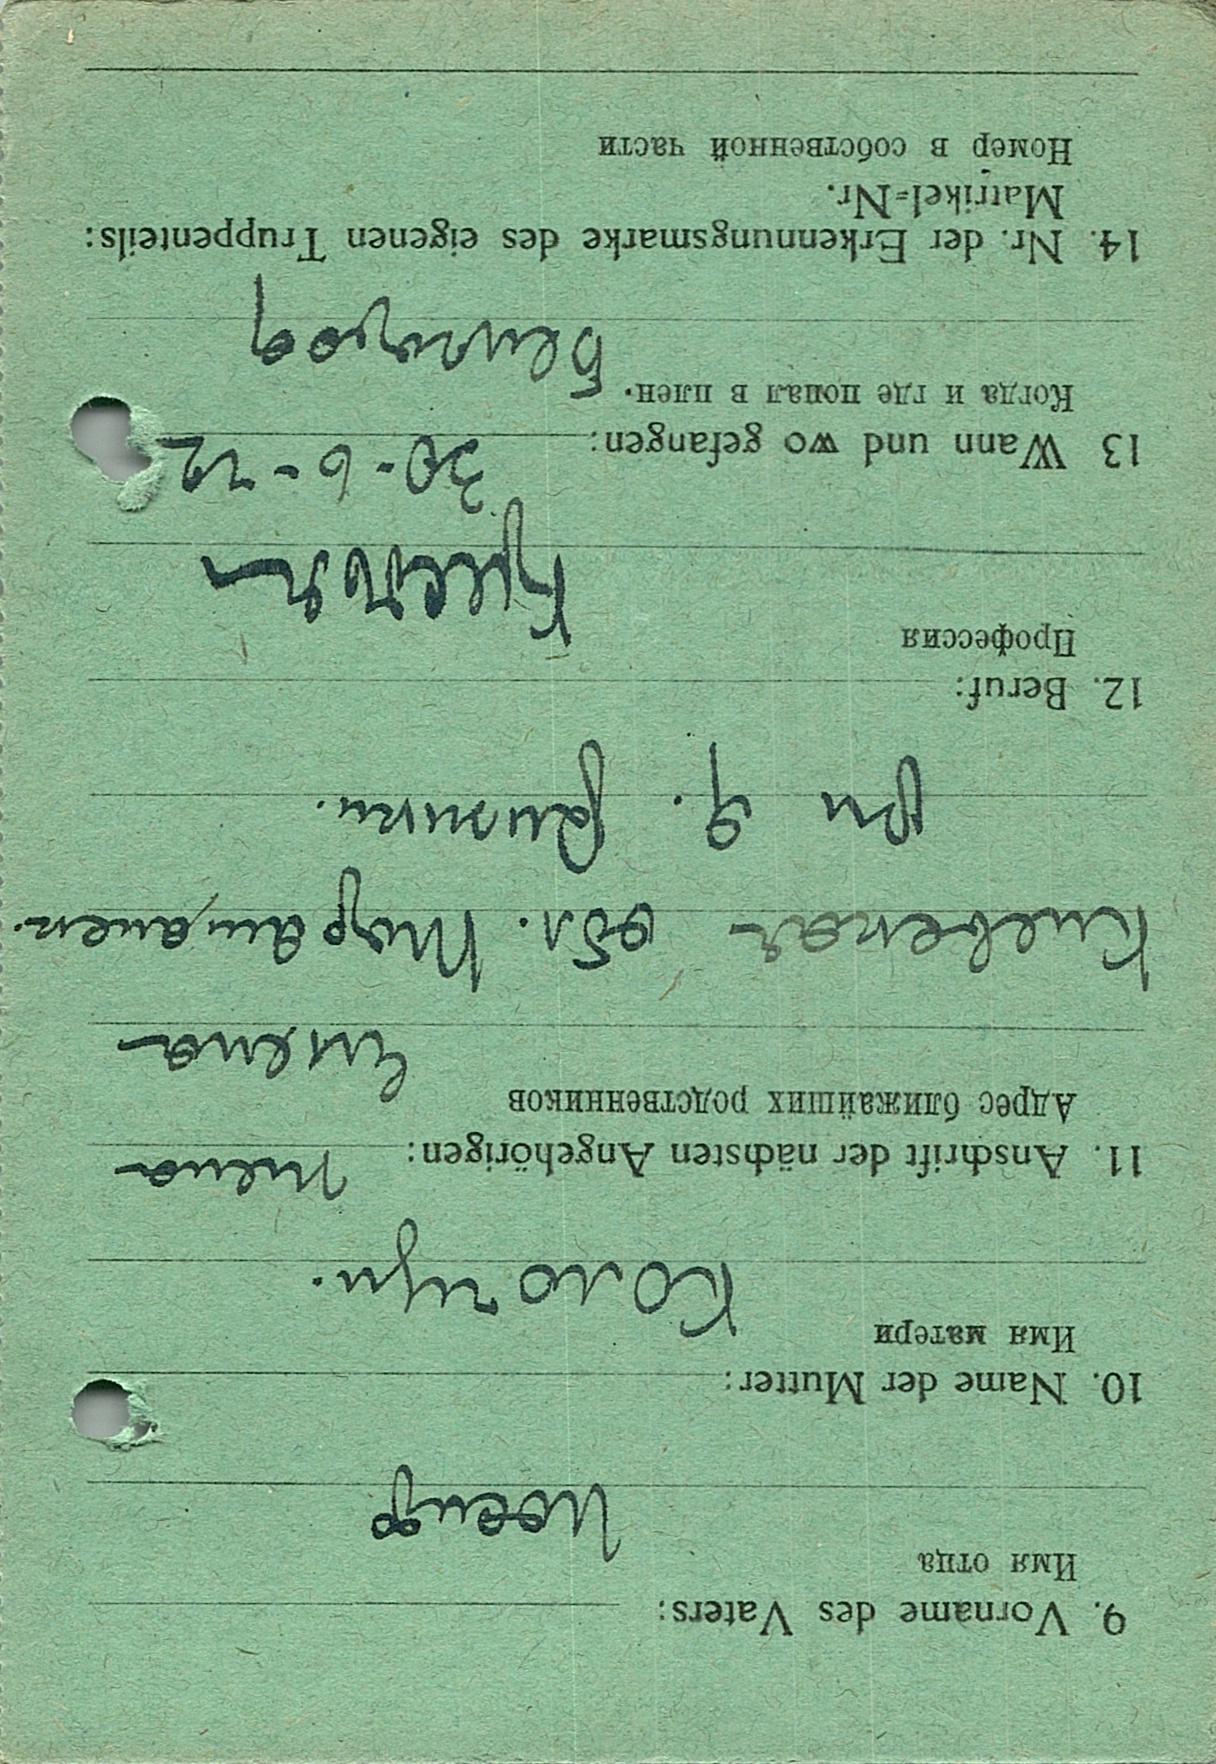 9. Vorname des Vaters:
Имя отца
Иосиф
10. Name der Mutter:
Имя матери
11. Anschrift der nächsten Angehörigen:
Адрес ближайших родственников
Елена
Киевская обл.
12. Beruf:
Профессия
13 Wann und wo gefangen: 30-6-42
Когда и где попал в плен.
Белгород
14. Nr. der Erkennungsmarke des eigenen Truppenteils:
Matrikel=Nr.
Номер в собственной части